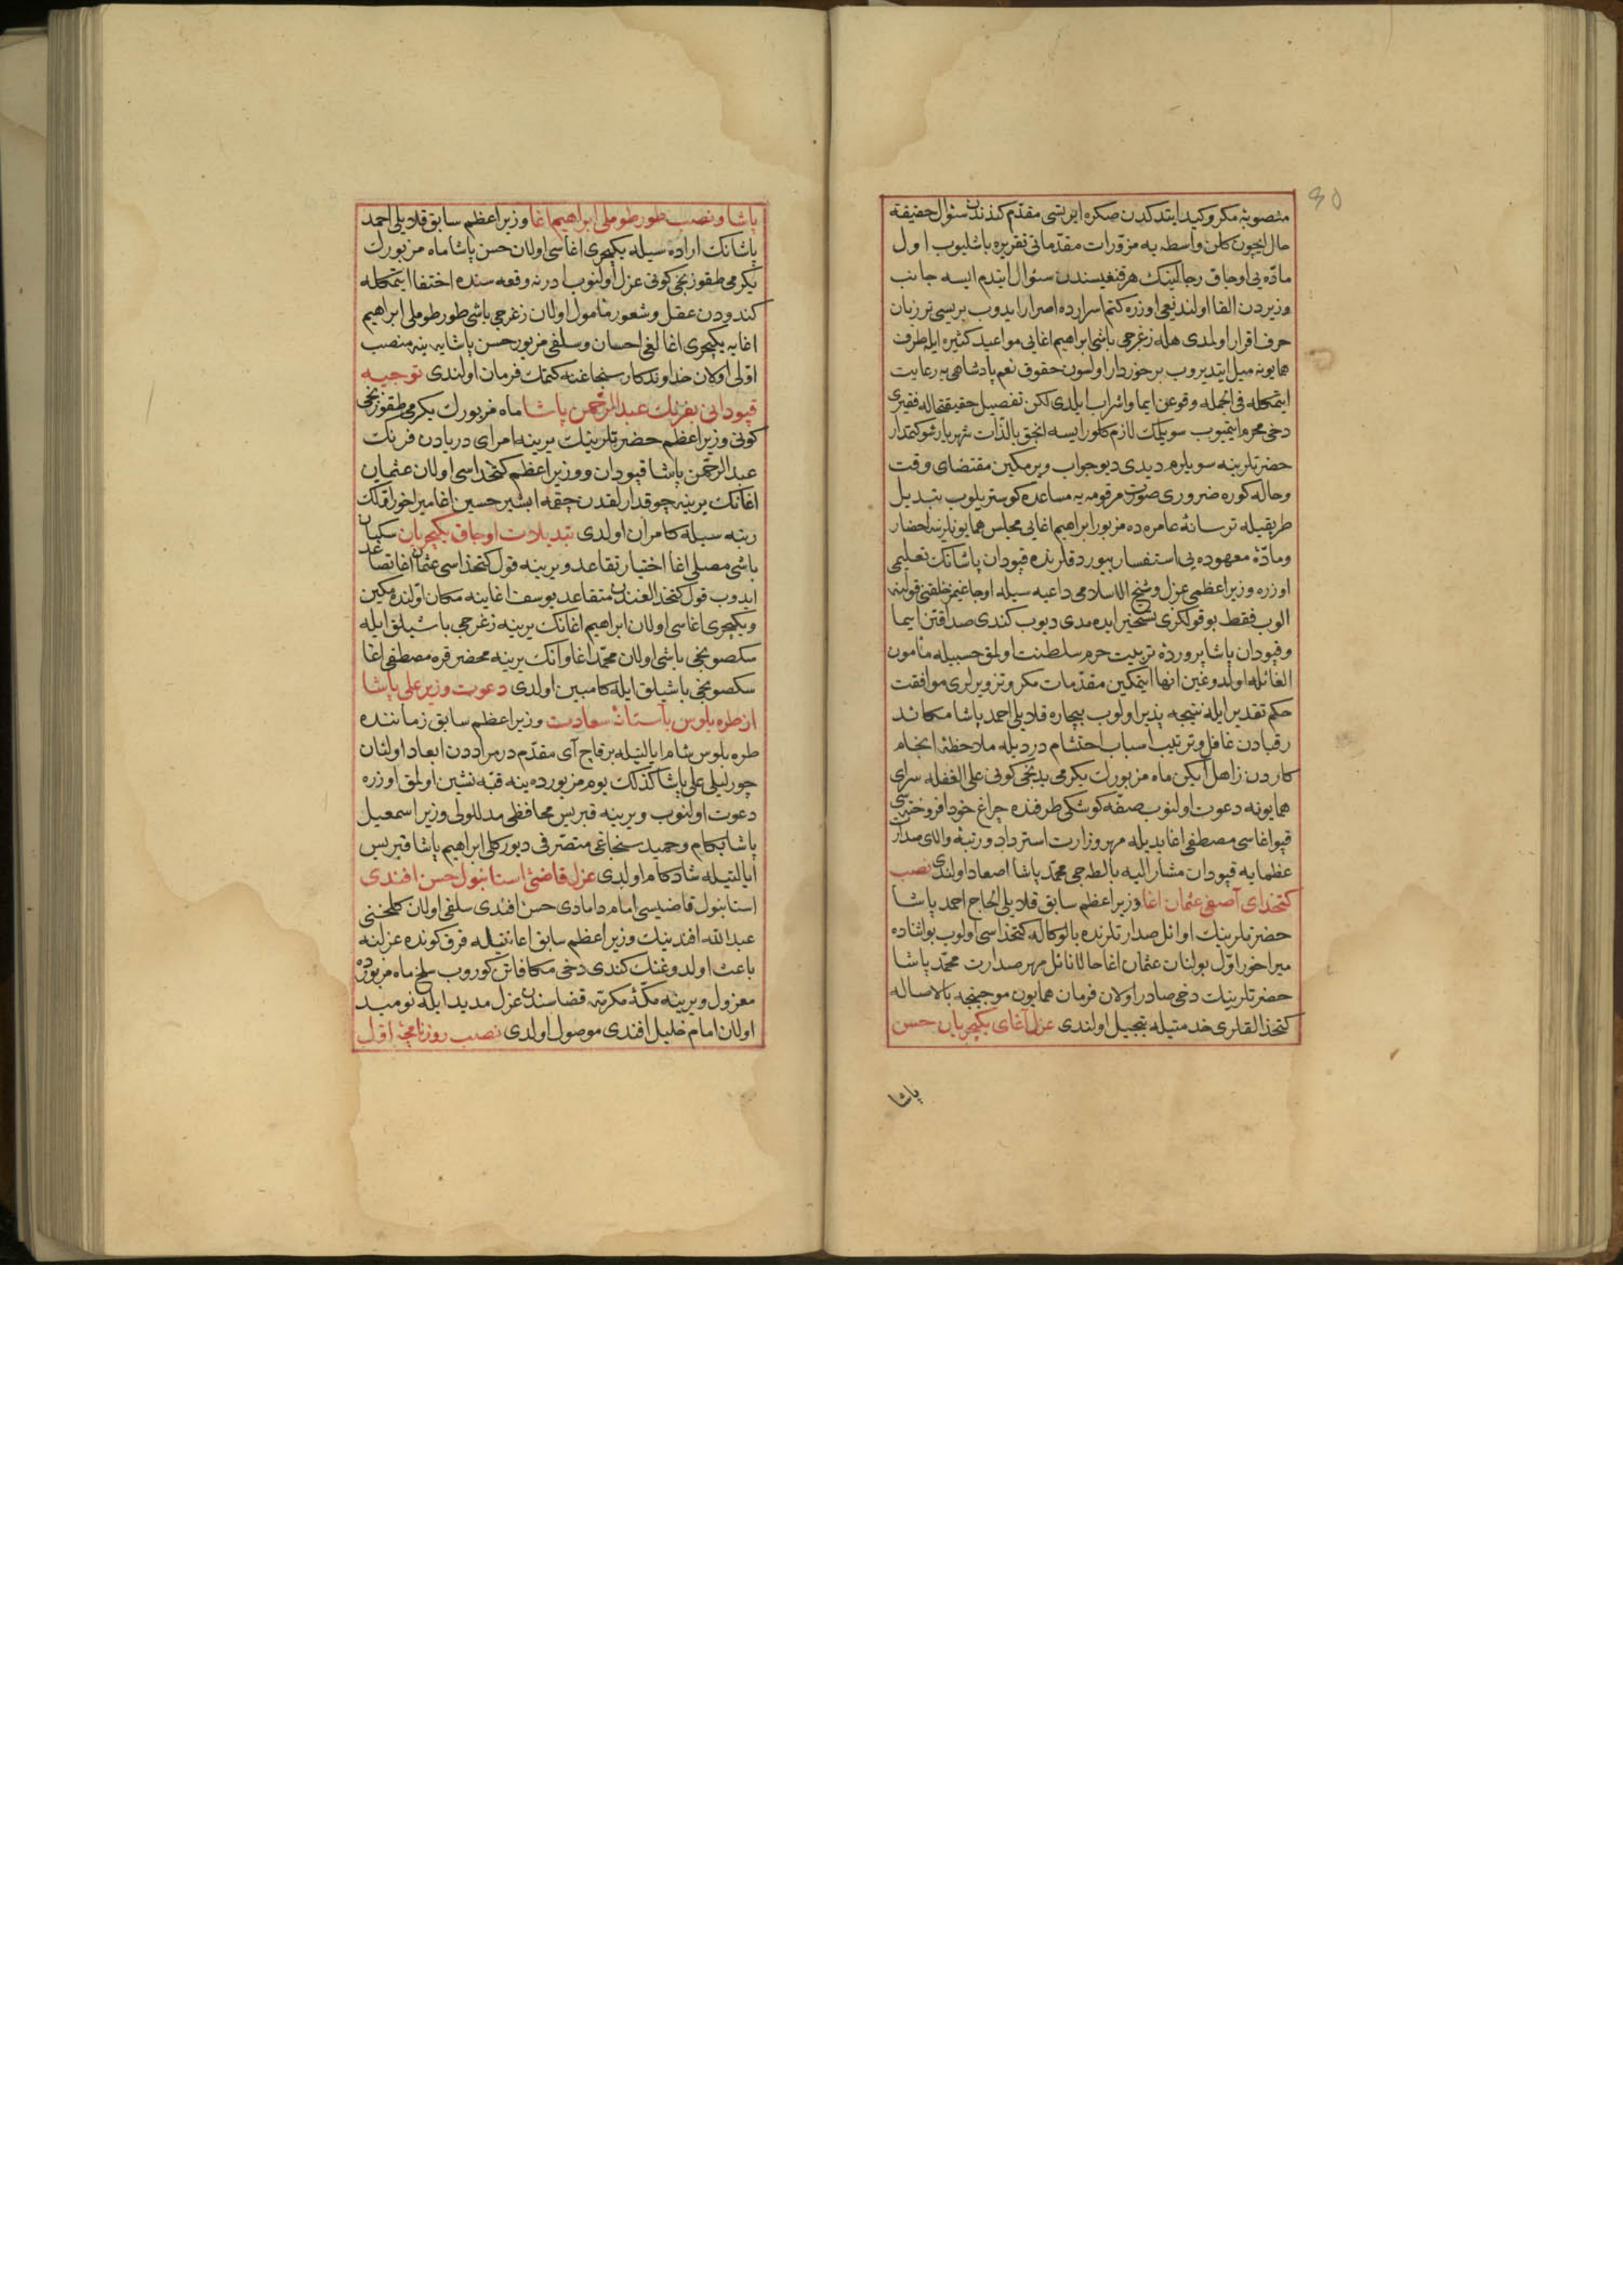 30
منصوبۀ مكر وكيد ايتدكدن صكره ايرتسى مقدّم كندندن سئوال حقيقة
حال ايچون كلن واسطه يه مزوّرات مقدّماتى تقريره باشليوب اول
مادّه يى اوجاق رجالينك هرقنغيسندن سئوال ايتدم ايسه جانب
وزيردن القا اولنديغى اوزره كتم اسرارده اصرار ايدوب بريسى تر زبان
حرف اقرار اولمدى هله زغرجى باشى ابراهيم اغايى مواعيد كثيره ايله طرف
همايونه ميل ايتديروب برخوردار اولسون حقوق نعم پادشاهى يه رعايت
ايتمكله فى الجمله وقوعن ايما واشراب ايلدى لكن تفصيل حقيقتحاله فقيرى
دخى محرم ايتميوب سويلمك لازم كلور ايسه انجق بالذّات شهريار شوكتمدار
حضرتلرينه سويلرم ديدى ديو جواب ويرمكين مقتضاى وقت
وحاله كوره ضرورى صورت مرقومه يه مساعده كوستريلوب تبديل
طريقيله ترسانۀ عامره ده مزبور ابراهيم اغايى مجلس همايونلرينه احضار
ومادّۀ معهوده يى استفسار بيوردقلرنده قپودان پاشانك تعليمى
اوزره وزير اعظمى عزل وشيخ الاسلامى داعيه سيله اوجاغيمز خلقنى قولنه
الوب فقط بو قولكزى تسخير ايده مدى ديوب كندى صداقتن ايما
وقپودان پاشا پروردۀ تربيت حرم سلطنت اولمق حسبيله مأمون
الغائله اولدوغين انها ايتمكين مقدّمات مكر وتزويرلرى موافقت
حكم تقدير ايله نتيجه پذير اولوب بيچاره قلايلى احمد پاشا مكائد
رقبادن غافل وترتيب اسباب احتشام درديله ملاحظۀ انجام
كاردن زاهل ايكن ماه مزبورك يكرمى يدنجى كونى على الغفله سراى
همايونه دعوت اولنوب صفّه كوشكى طرفنده چراغ خود افروختۀ سى
قپو اغاسى مصطفى اغا يديله مهر وزارت استرداد ورتبۀ والاى صدارت
عظمايه قپودان مشار اليه بالطه جى محمّد پاشا اصعاد اولندى نصب
كتخداى آصفى عثمان اغا وزير اعظم سابق قلايلى الحاج احمد پاشا
حضرتلرينك اوائل صدارتلرنده بالوكاله كتخداسى اولوب بو اثناده
ميراخور اوّل بولنان عثمان اغا حالا نائل مهر صدارت محمّد پاشا
حضرتلرينك دخى صادر اولان فرمان همايون موجبنجه بالاصاله
كتخدالقلرى خدمتيله تبجيل اولندى عزل آغاى يكيچريان حسن
پاشا
پاشا ونصب طورطوملى ابراهيم اغا وزير اعظم سابق قلايلى احمد
پاشانك اراده سيله يكيچرى اغاسى اولان حسن پاشا ماه مزبورك
يكرمى طقوزنجى كونى عزل اولنوب ادرنه وقعه سنده اختفا ايتمكله
كندودن عقل وشعور مأمول اولان زغرجى باشى طورطوملى ابراهيم
اغايه يكيچرى اغالغى احسان وسلفى مزبور حسن پاشايه ينه منصب
اوّلى اولان خداوندكار سنجاغنه كتمك فرمان اولندى توجيه
قپودانى بفرنك عبد الرّحمن پاشا ماه مزبورك يكرمى طقوزنجى
كونى وزير اعظم حضرتلرينك يرينه امراى دريادن فرنك
عبد الرّحمن پاشا قپودان ووزير اعظم كتخداسى اولان عثمان
اغانك يرينه چوقدارلقدن چقمه ابشير حسين اغا ميراخور اوّللك
رتبه سيله كامران اولدى تبديلات اوجاق يكيچريان سكبان
باشى مصلى اغا اختيار تقاعد ويرينه قول كتخداسى عثمان اغا تصاعد
ايدوب قول كتخدالغندن متقاعد يوسف اغا ينه مكان اوّلنده مكين
ويكيچرى اغاسى اولان ابراهيم اغانك يرينه زغرجى باشيلق ايله
سكصونجى باشى اولان محمّد اغا وانك يرينه محضر قره مصطفى اغا
سكصونجى باشيلق ايله كامبين اولدى دعوت وزير على پاشا
از طره بلوس بآستانۀ سعادت وزير اعظم سابق زماننده
طره بلوس شام ايالتيله برقاج آى مقدّم در مراددن ابعاد اولنان
چورليلى على پاشا كذلك يوم مزبورده ينه قبّه نشين اولمق اوزره
دعوت اولنوب ويرينه قبريس محافظى مدللولى وزير اسمعيل
پاشا بكام وحميد سنجاغى متصرّفى ديوركلى ابراهيم پاشا قبريس
ايالتيله شادكام اولدى عزل قاضئ استانبول حسن افندى
استانبول قاضيسى امام دامادى حسن افندى سلفى اولان كلمختى
عبد الله افندينك وزير اعظم سابق اعانتيله فرق كونده عزلنه
باعث اولدوغنك كندى دخى مكافاتن كوروب سلخ ماه مزبورده
معزول ويرينه مكّۀ مكرّمه قضاسندن عزل مديد ايله نوميد
اولان امام خليل افندى موصول اولدى نصب روزنامچۀ اوّل